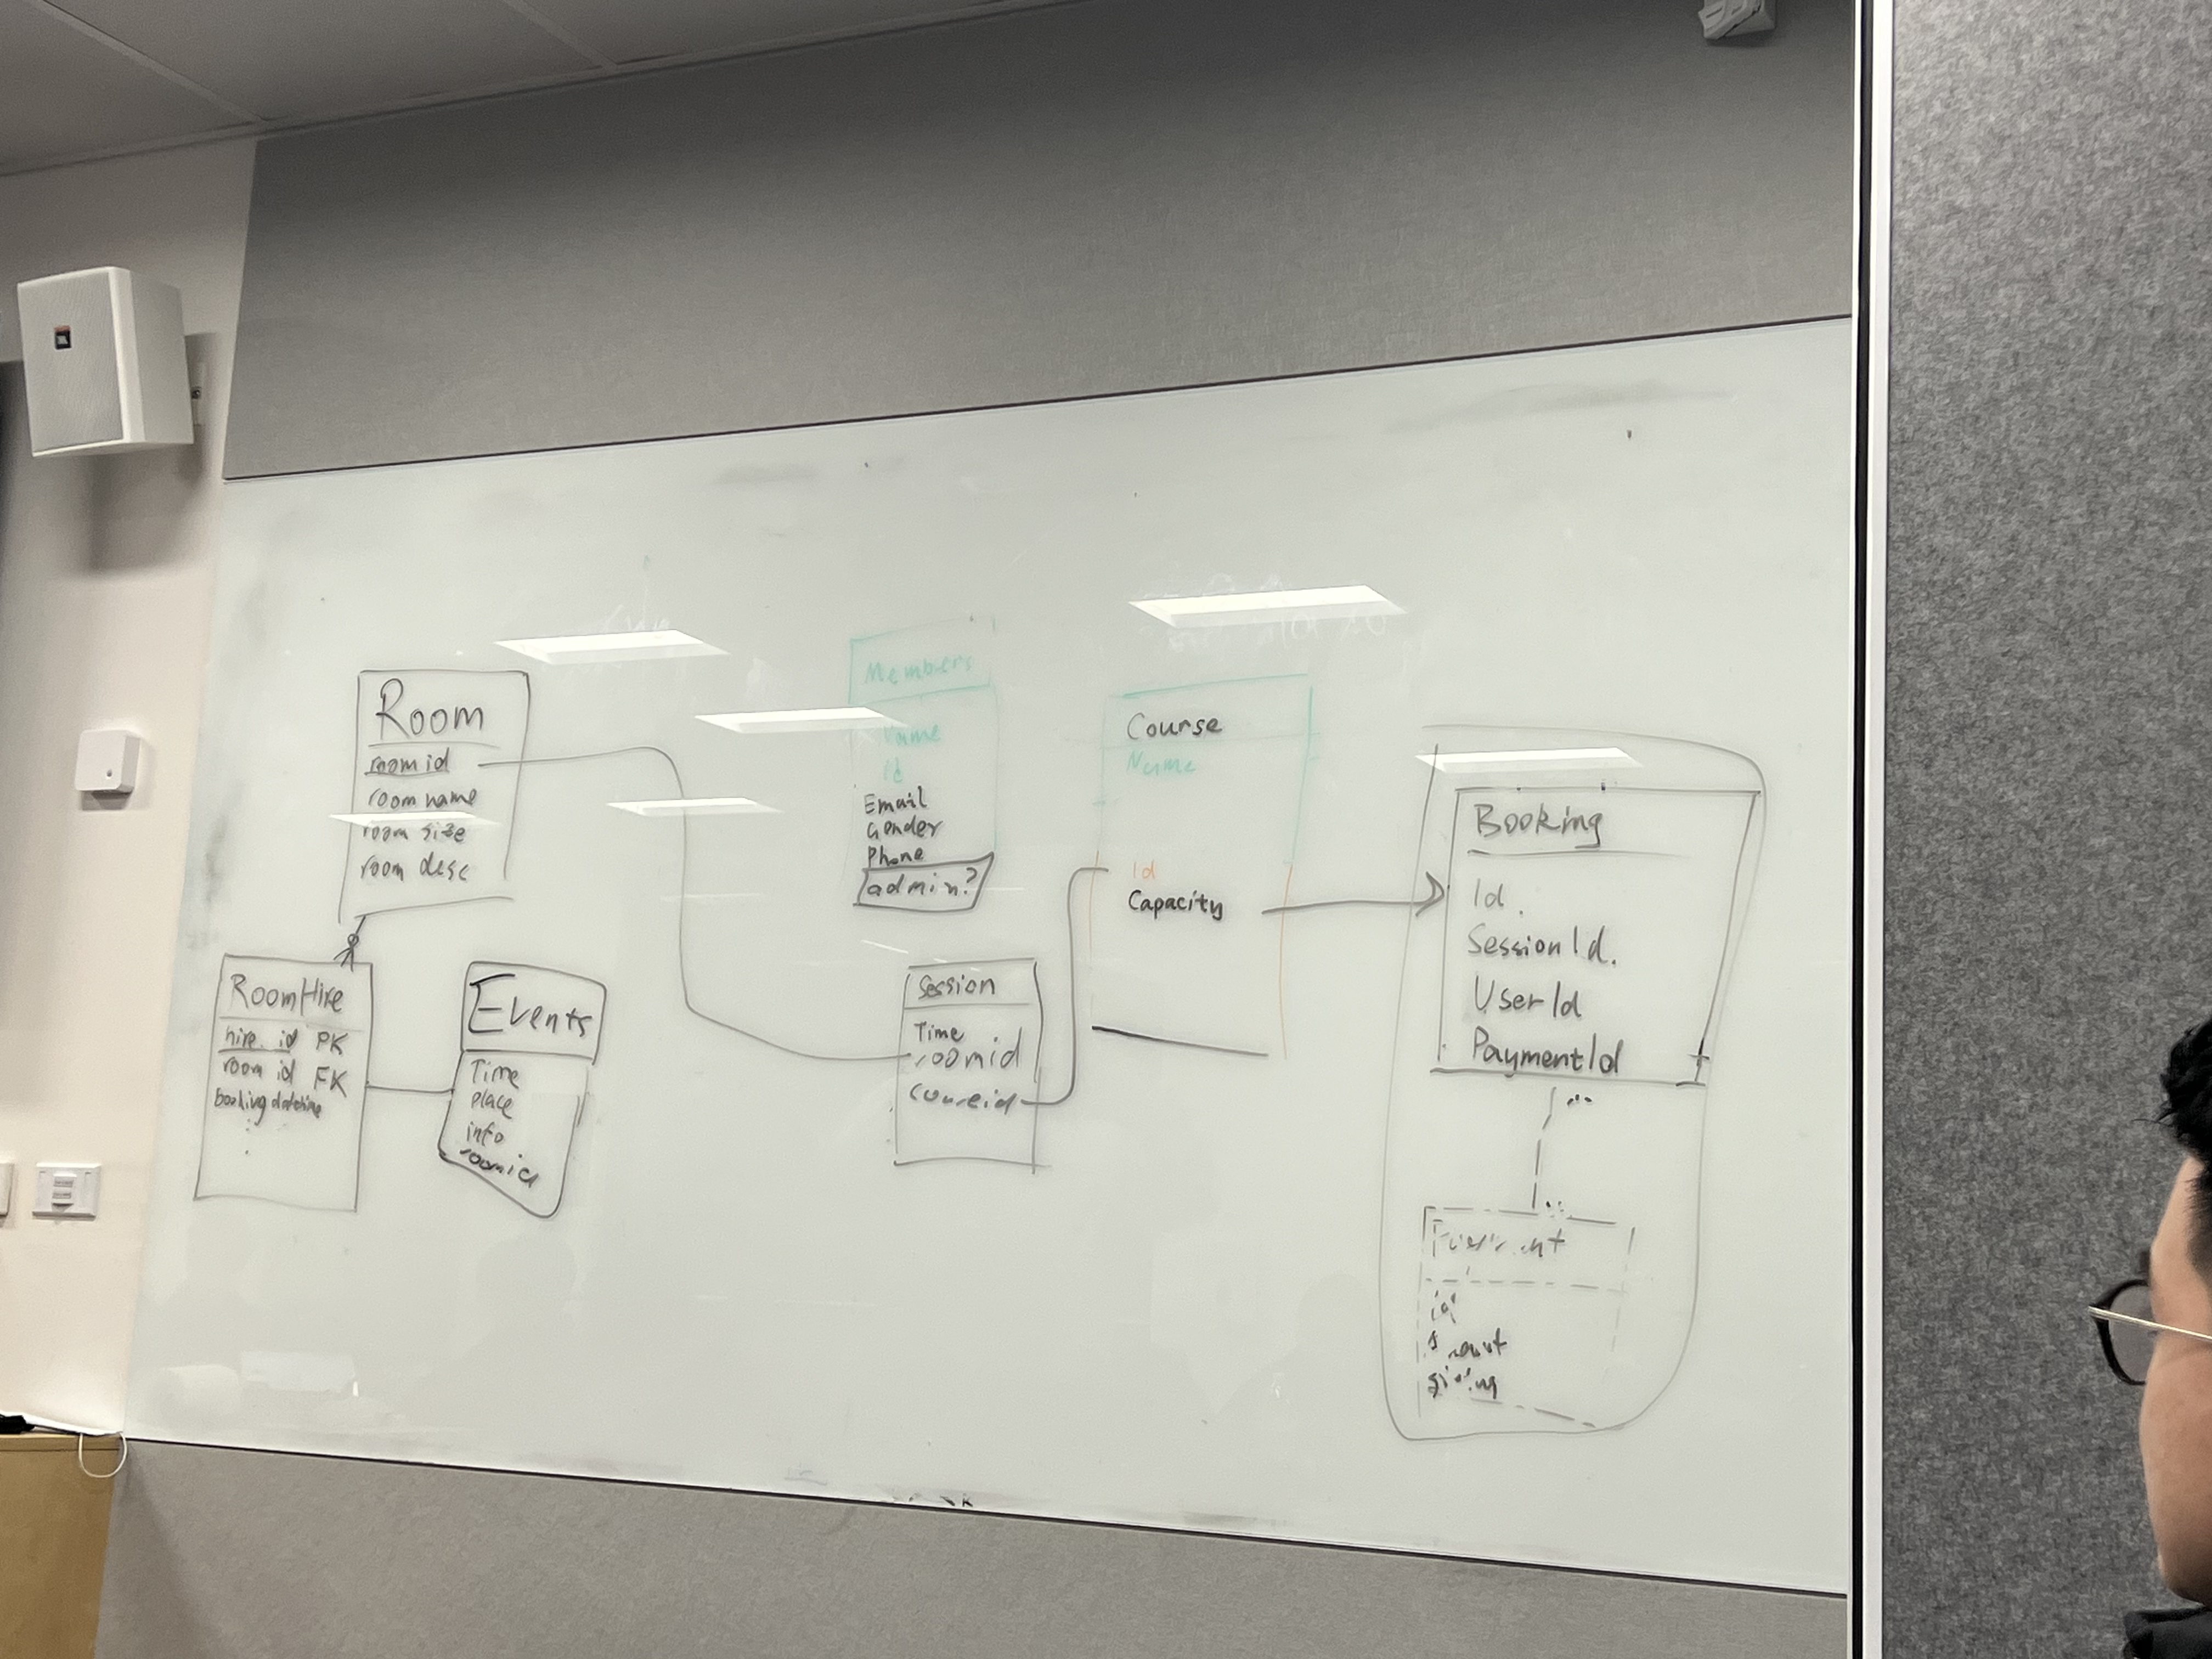 Room
room id
room name
room size
room desc
RoomHire
hire. id PK
room id FK
booking datetime
Events
Time
place
info
roomid
Members
Name
id
Email
Gender
Phone
admin?
Session
Time
roomid
Course
Name
Id
Capacity
Booking
Id.
SessionId.
UserId
PaymentId
id